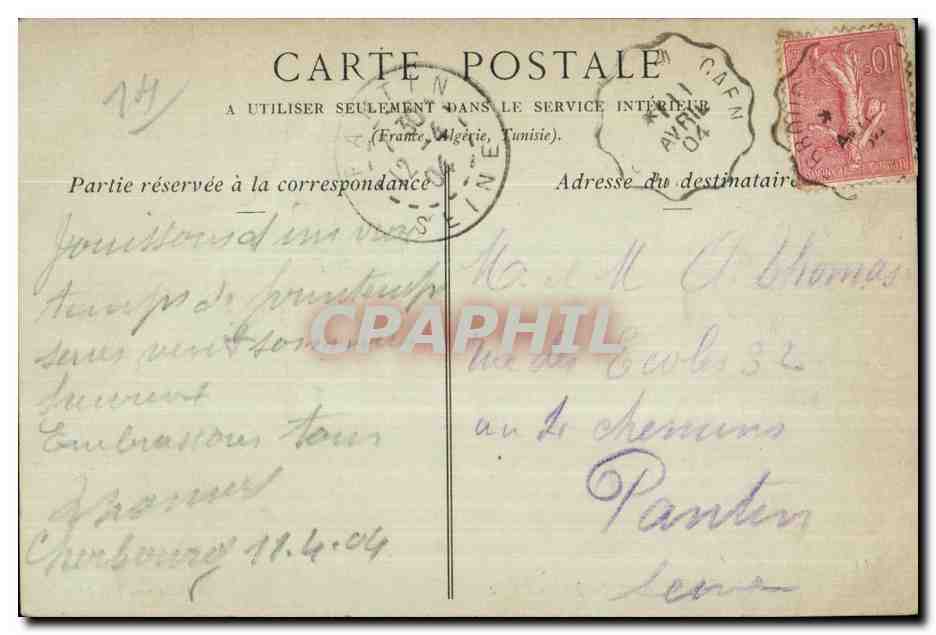 14
CARTE POSTALE
A UTILISER SEULEMENT DANS LE SERVICE INTÉRIEUR
(France, Algérie, Tunisie).
Partie réservée à la correspondance
Jouissons d'un vrai
temps de printemps
vent sommes
heureux
Embrassons tous
Thomas
Cherbourg 11.4.04
Adresse du destinataire
M. et M A. Thomas
rue des Ecoles 32
au 4 chemins
Pantin
Seine
PANTIN
30
12 - 4
04
SEINE
CAEN
11
AVRIL
04
10c
CPAPHIL